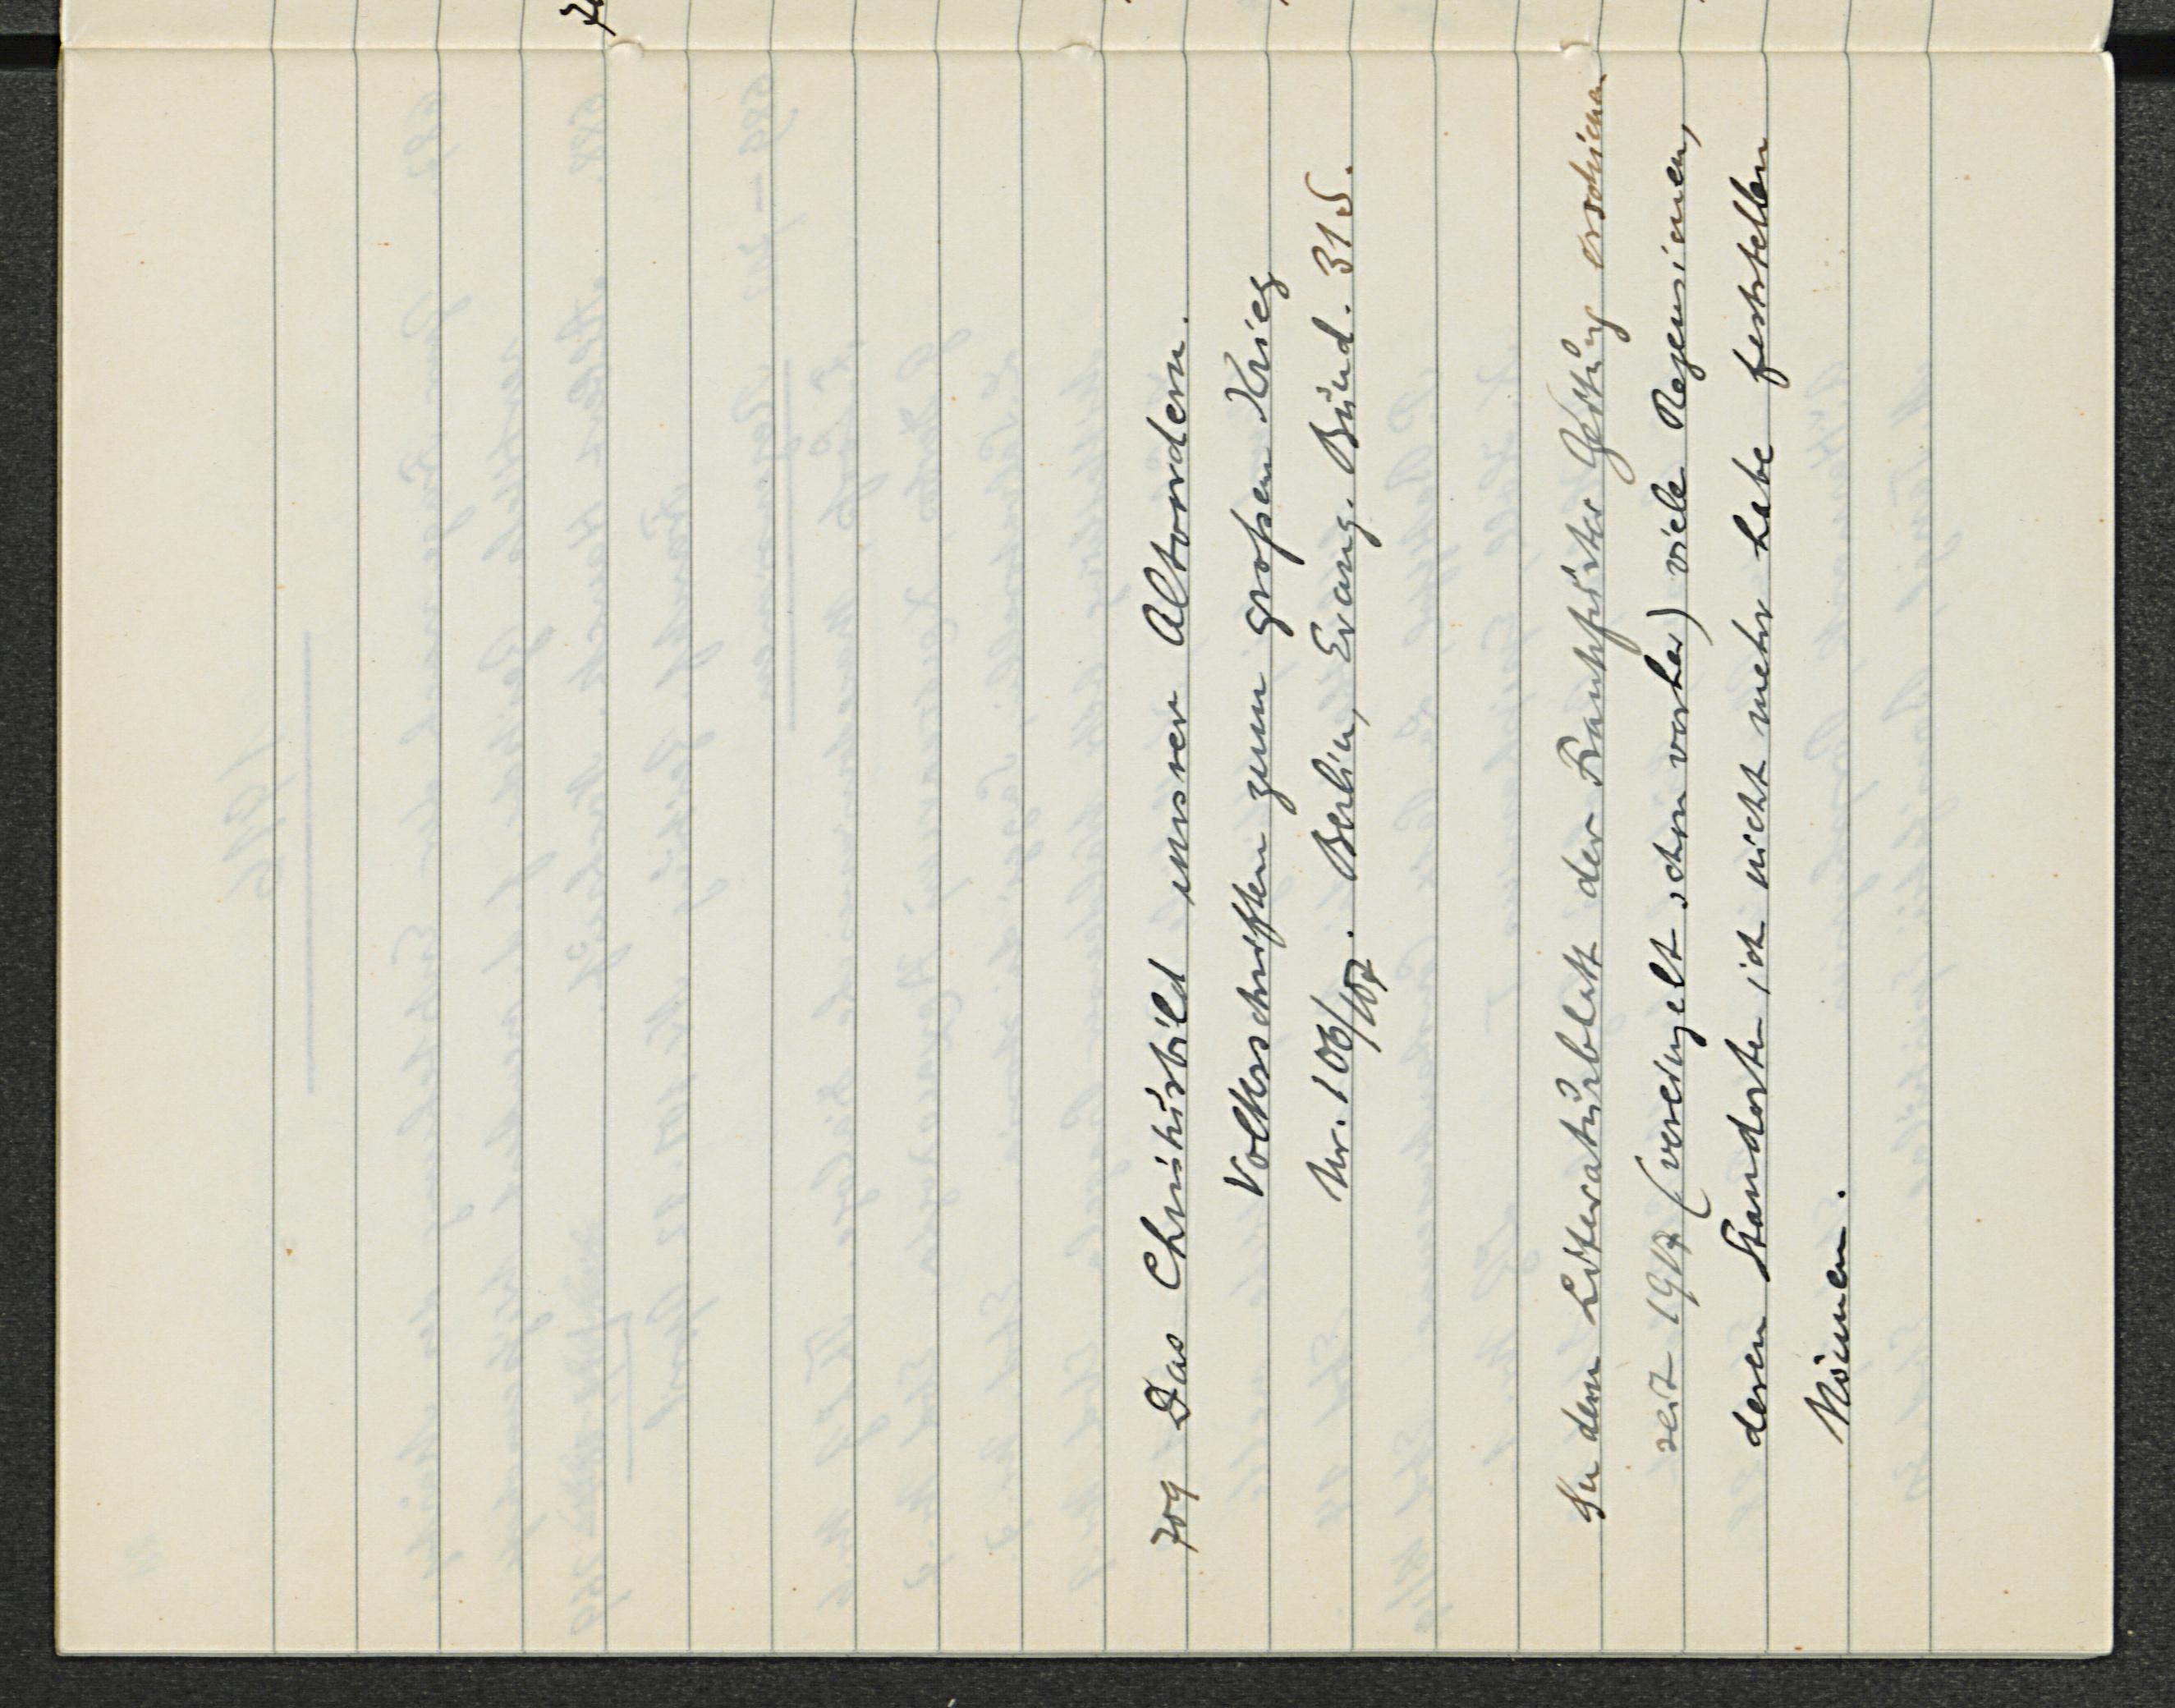 709 Das Christusbild unsrer Altvordern.
Volksschriften zum großen Krieg
Nr. 106/107. Berlin, Evang. Bund. 31 S.
In dem Literaturblatt der Frankfurter Zeitung erschienen
seit 1917 (vereinzelt schon vorher) viele Rezensionen,
deren Standorte ich nicht mehr habe feststellen
können.